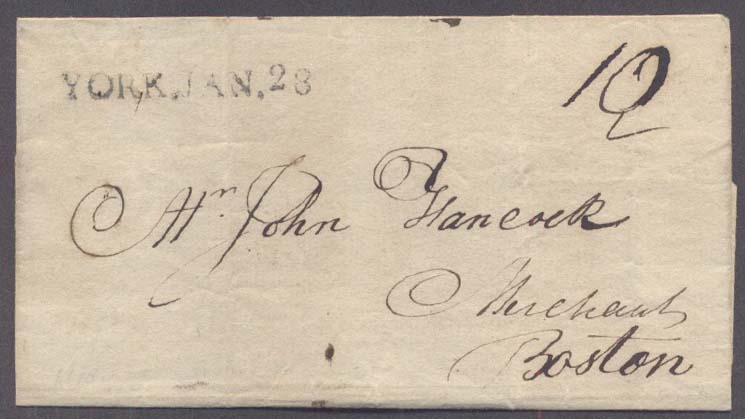 YORK.JAN.28
12
Mr. John Hancock
Merchant
Boston